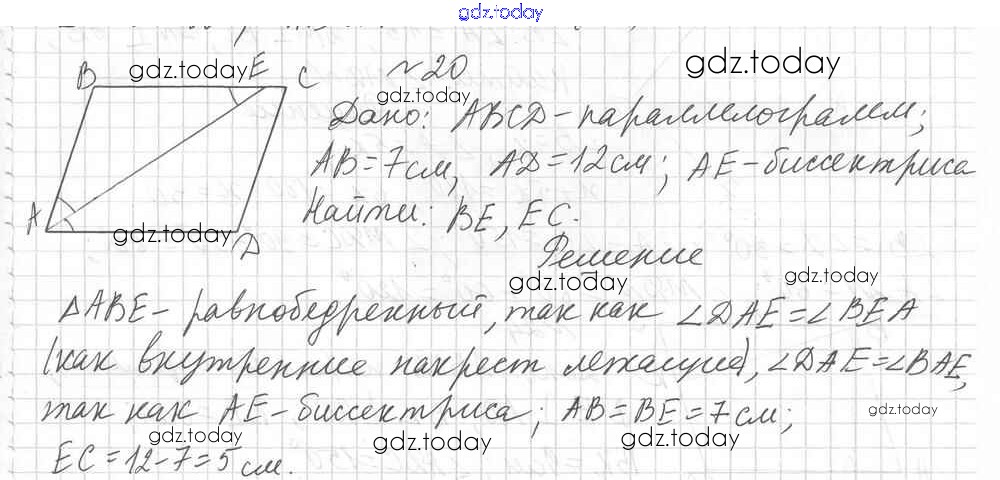 gdz.today
B gdz.today E C
№20
gdz.today
gdz.today
Дано: ABCD - параллелограмм;
AB = 7 см, AD = 12 см; AE - биссектриса
Найти: BE, EC.
A gdz.today D
Решение
gdz.today
gdz.today
△ABE - равнобедренный, так как ∠DAE = ∠BEA
(как внутренние накрест лежащие), ∠DAE = ∠BAE,
так как AE - биссектриса; AB = BE = 7 см;
gdz.today
gdz.today
gdz.today
gdz.today
EC = 12 - 7 = 5 см.